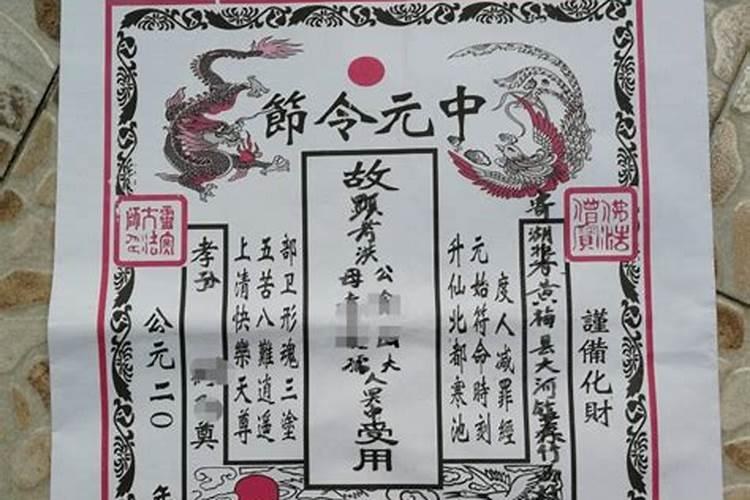 中元令節
佛法
僧寶
謹備化財
寄湖北黄梅县大河镇
度人减罪經
元始符命時刻
升仙北都寒池
故顯考洪公大人
母孺人
受用
部卫形魂三塗
五苦八難逍遥
上清快樂天尊
孝孙 奠
靈寶
大法
師印
公元二〇 年